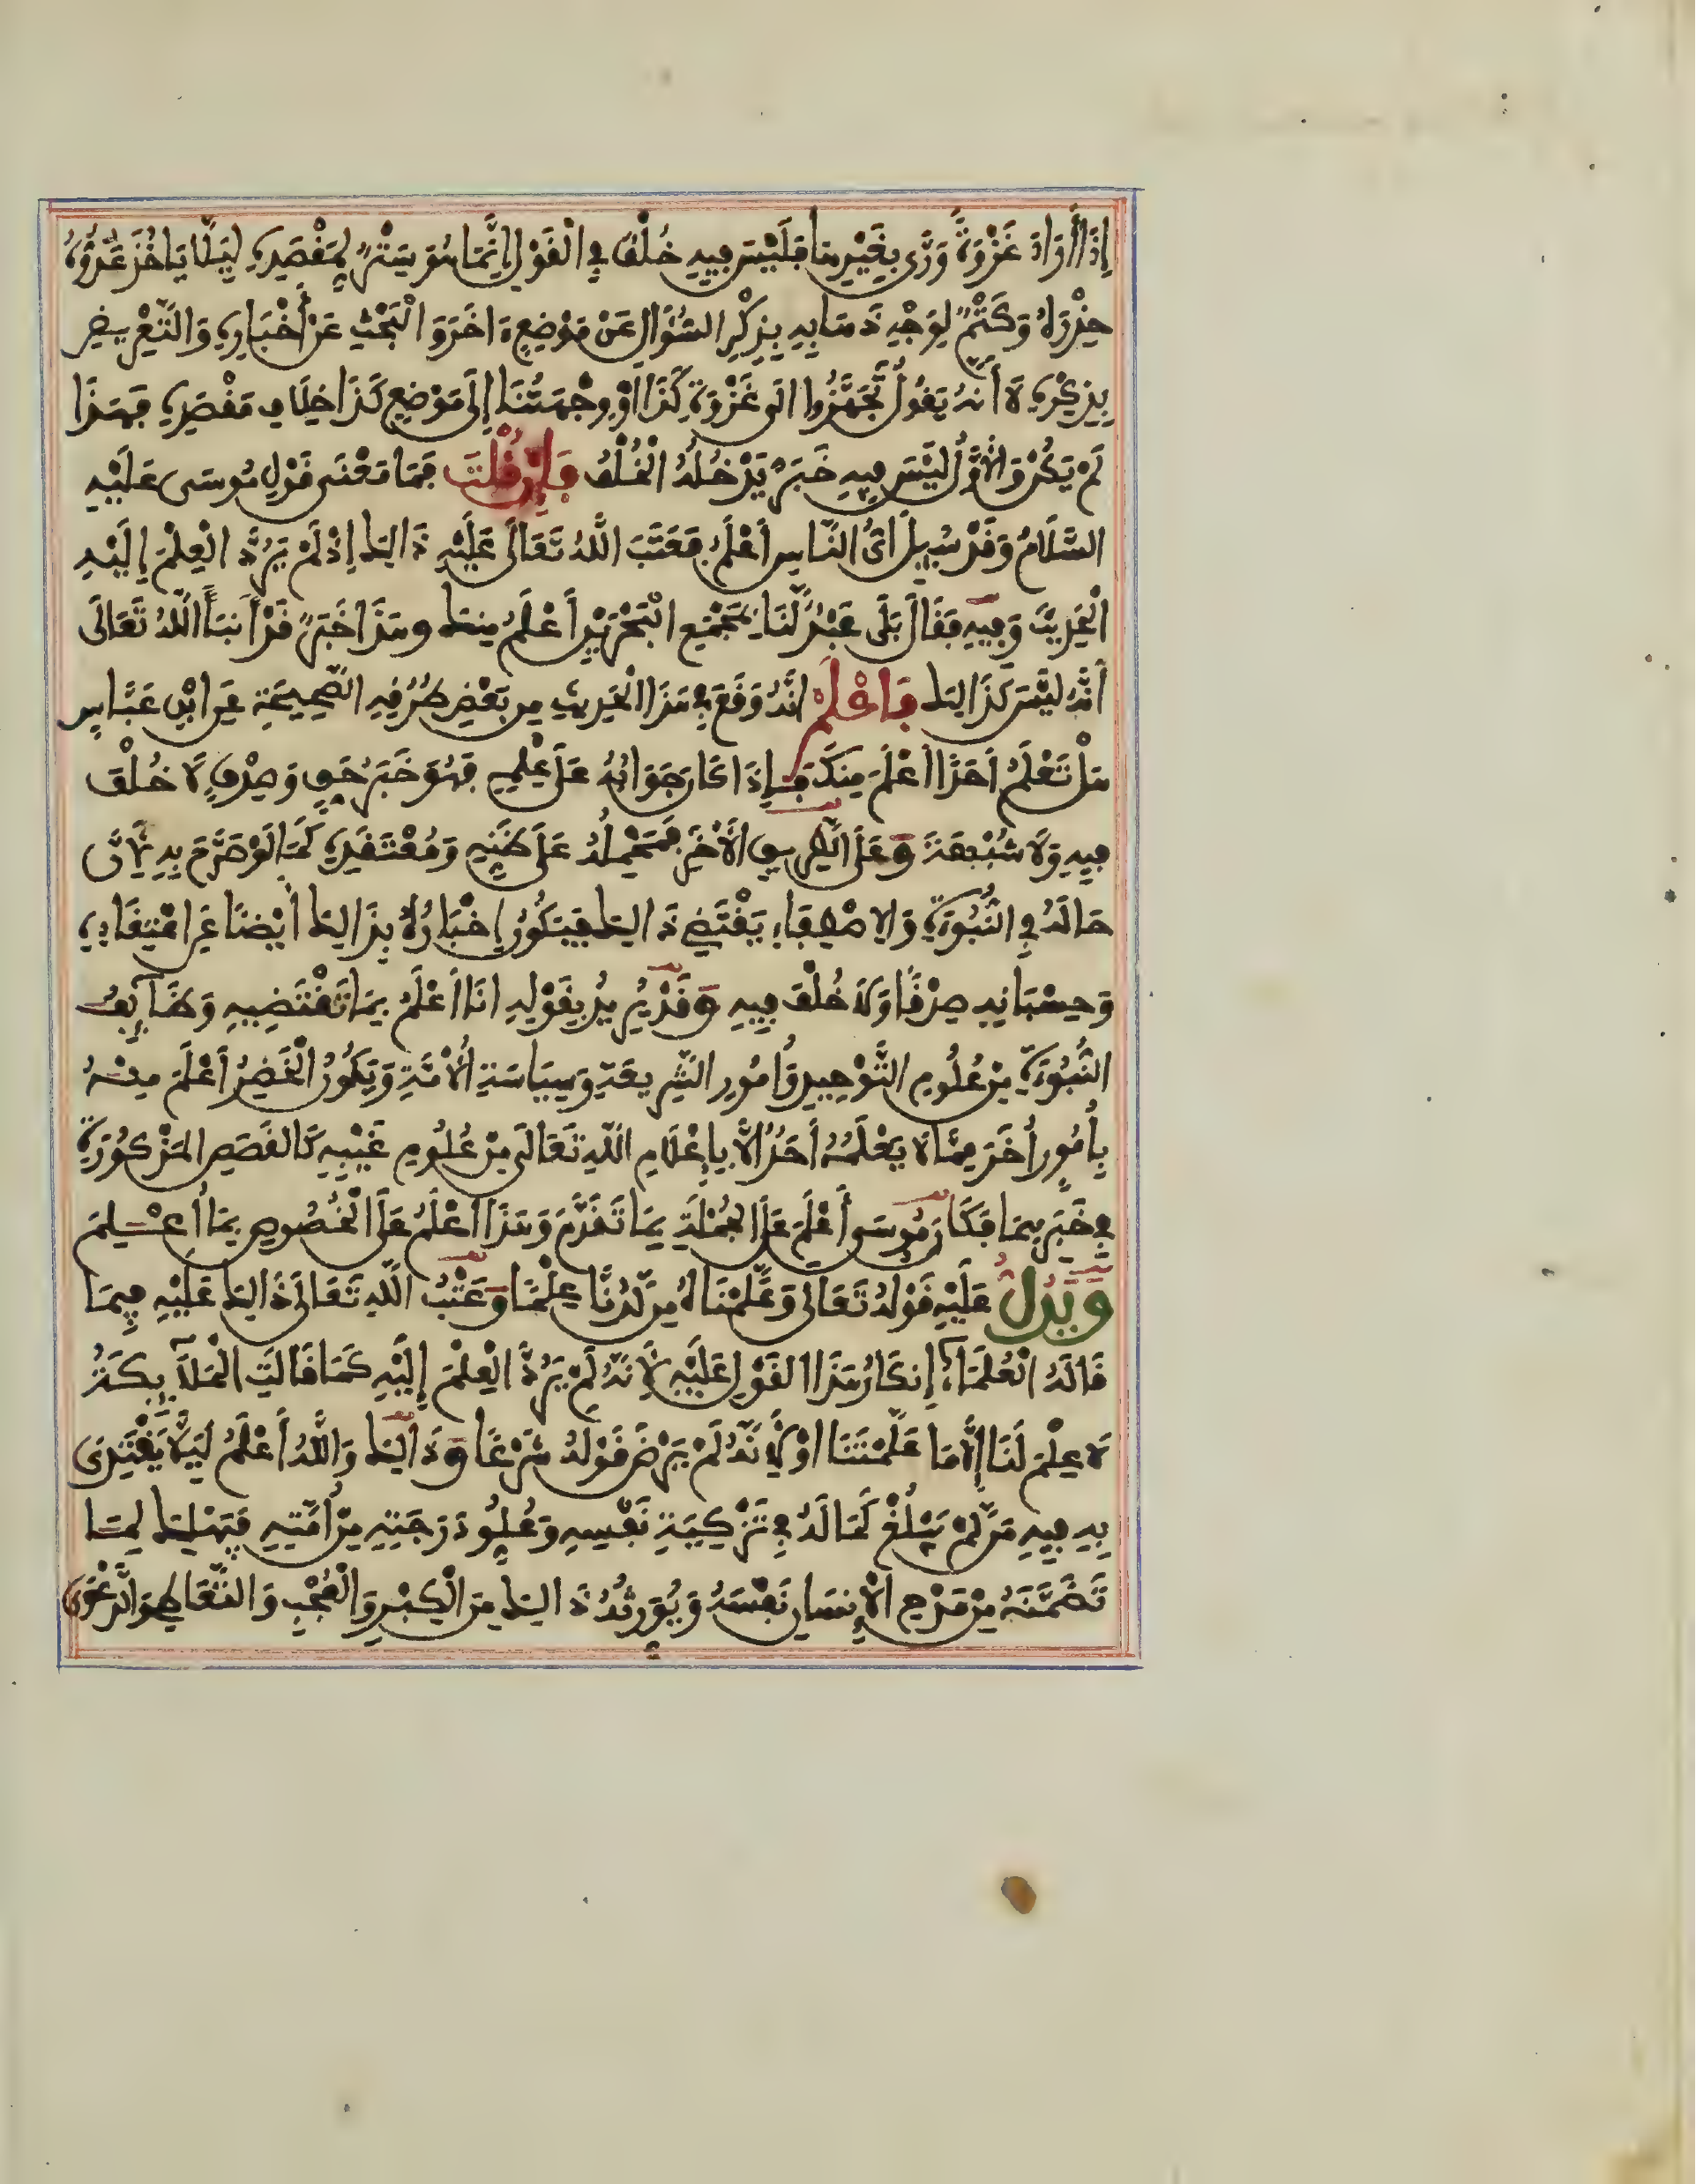 إِذَا أَرَادَ غَزْوَةً وَرَّى بِغَيْرِهَا فَلَيْسَ فِيهِ خُلْفٌ فِي الْقَوْلِ إِنَّمَا هُوَ سَتْرٌ لِمَقْصَدِهِ لِيَلَّا يَاخُذَ عَدُوُّهُ
حِذْرَهُ وَكَتْمٌ لِوَجْهِ ذَهَابِهِ بِذِكْرِ السُّؤَالِ عَنْ مَوْضِعٍ ءَاخَرَ وَالْبَحْثِ عَنْ أَخْبَارِهِ وَالتَّعْرِيضِ
بِذِكْرِهِ لَا أَنَّهُ يَقُولُ تَجَهَّزُوا إِلَى غَزْوَةِ كَذَا أَوْ وِجْهَتُنَا إِلَى مَوْضِعِ كَذَا خِلَافِ مَقْصَدِهِ فَهَذَا
لَمْ يَكُنْ وَالْأَوَّلُ لَيْسَ فِيهِ خَبَرٌ يَدْخُلُهُ الْخُلْفُ فَإِن قُلْتَ فَمَا مَعْنَى قَوْلِ مُوسَى عَلَيْهِ
السَّلَامُ وَقَدْ سُيِلَ أَيُّ النَّاسِ أَعْلَمُ فَعَتَبَ اللَّهُ تَعَالَى عَلَيْهِ ذَالِكَ إِذْ لَمْ يَرُدَّ الْعِلْمَ إِلَيْهِ
الْحَدِيثَ وَفِيهِ فَقَالَ بَلَى عَبْدٌ لَنَا بِمَجْمَعِ الْبَحْرَيْنِ أَعْلَمُ مِنكَ وهَذَا خَبَرٌ قَدْ أَنبَأَ اللَّهُ تَعَالَى
أَنَّهُ لَيْسَ كَذَالِكَ فَاعْلَمْ أَنَّهُ وَقَعَ فِي هَذَا الْحَدِيثِ مِن بَعْضِ طُرُقِهِ الصَّحِيحَةِ عَنِ ابْنِ عَبَّاسٍ
هَلْ تَعْلَمُ أَحَدًا أَعْلَمَ مِنكَ فَإِذَا كَانَ جَوَابُهُ عَلَى عِلْمِهِ فَهُوَ خَبَرُ حَقٍّ وَصِدْقٍ لَا خُلْفَ
فِيهِ وَلَا شُبْهَةَ وَعَلَى الطَّرِيقِ الْأُخَرِ فَمَحْمِلُهُ عَلَى ظَنِّهِ وَمُعْتَقَدِهِ كَمَا لَوْ صَرَّحَ بِهِ لِأَنَّ
حَالَهُ فِي النُّبُوَّةِ وَالِاصْطِفَاءِ يَقْتَضِي ذَالِكَ فَيَكُونُ إِخْبَارُهُ بِذَالِكَ أَيْضًا عَنِ اعْتِقَادِهِ
وَحِسْبَانِهِ صِدْقًا وَلَا خُلْفَ فِيهِ وَقَدْ يُرِيدُ بِقَوْلِهِ أَنَا أَعْلَمُ بِمَا تَقْتَضِيهِ وَظَآئِفُ
النُّبُوَّةِ مِنْ عُلُومِ التَّوْحِيدِ وَأُمُورِ الشَّرِيعَةِ وَسِيَاسَةِ الْأُمَّةِ وَيَكُونُ الْخَضِرُ أَعْلَمَ مِنْهُ
بِأُمُورٍ أُخَرَ مِمَّا لَا يَعْلَمُهُ أَحَدٌ إِلَّا بِإِعْلَامِ اللَّهِ تَعَالَى مِنْ عُلُومِ غَيْبِهِ كَالْقَصَصِ الْمَذْكُورَةِ
فِي خَبَرِهِمَا فَكَانَ مُوسَى أَعْلَمَ عَلَى الْجُمْلَةِ بِمَا تَقَدَّمَ وَهَذَا أَعْلَمُ عَلَى الْخُصُوصِ بِمَا أُعْلِمَ
وَيَدُلُّ عَلَيْهِ قَوْلُهُ تَعَالَى وَعَلَّمْنَاهُ مِن لَّدُنَّا عِلْمًا وَعَتْبُ اللَّهِ تَعَالَى ذَالِكَ عَلَيْهِ فِيمَا
قَالَهُ الْعُلَمَاءُ إِنكَارُ هَذَا الْقَوْلِ عَلَيْهِ لِأَنَّهُ لَمْ يَرُدَّ الْعِلْمَ إِلَيْهِ كَمَا قَالَتِ الْمَلَآئِكَةُ
لَا عِلْمَ لَنَا إِلَّا مَا عَلَّمْتَنَا أَوْ لِأَنَّهُ لَمْ يَرْضَ قَوْلَهُ شَرْعًا وَذَالِكَ وَاللَّهُ أَعْلَمُ لِيَلَّا يَقْتَدِيَ
بِهِ فِيهِ مَن لَّمْ يَبْلُغْ كَمَالَهُ فِي تَزْكِيَةِ نَفْسِهِ وَعُلُوِّ دَرَجَتِهِ مِنْ أُمَّتِهِ فَيَهْلِكَ لِمَا
تَضَمَّنَهُ مِنْ مَدْحِ الْإِنسَانِ نَفْسَهُ وَيُورِثُهُ ذَالِكَ مِنَ الْكِبْرِ وَالْعُجْبِ وَالتَّعَاطِي وَالدَّعْوَى